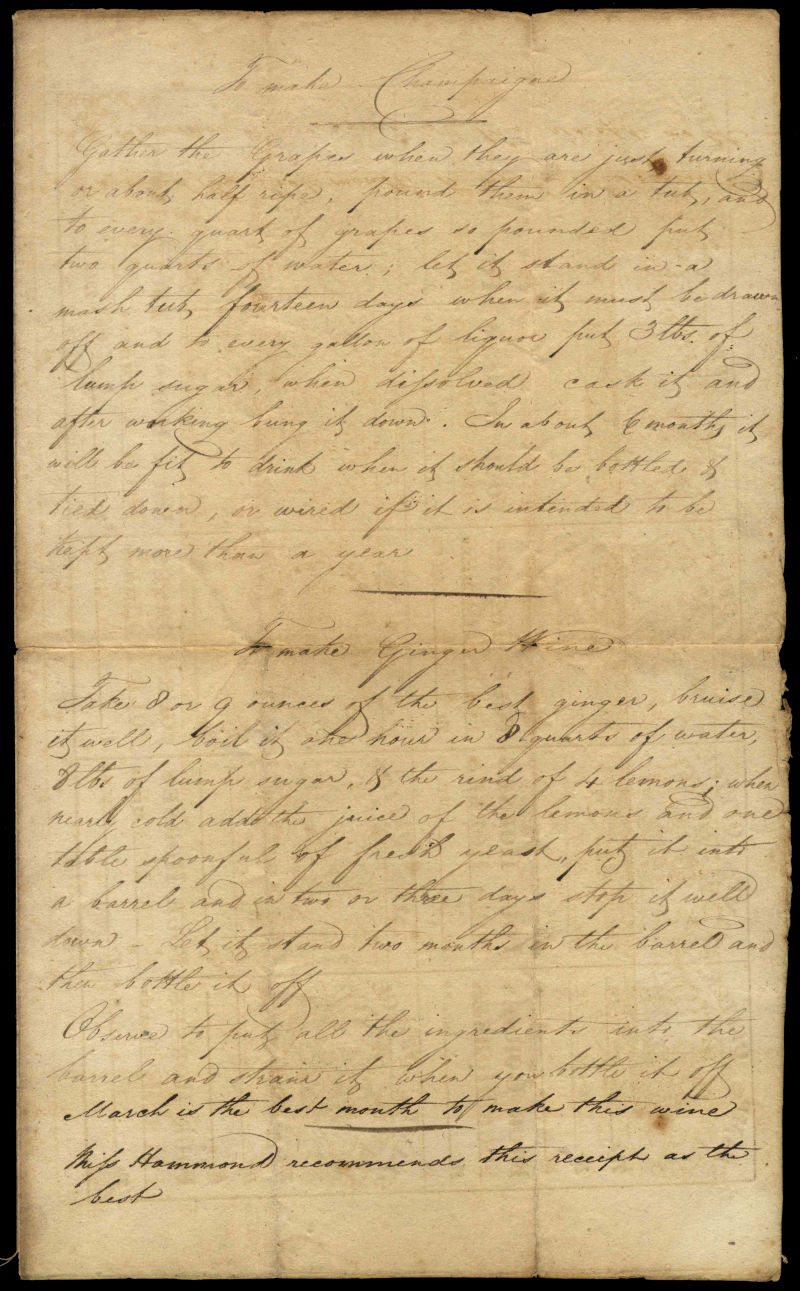 To make Champaigne
Gather the Grapes when they are just turning
or about half ripe, pound them in a tub, and
to every quart of grapes so pounded put
two quarts of water; let it stand in a
mash tub fourteen days when it must be drawn
off and to every gallon of liquor put 3 lbs. of
lump sugar, when dissolved cask it and
after working bung it down. In about 6 months it
will be fit to drink when it should be bottled &
tied down, or wired if it is intended to be
kept more than a year
To make Ginger Wine
Take 8 or 9 ounces of the best ginger, bruise
it well, boil it one hour in 8 quarts of water,
8 lbs of lump sugar, & the rind of 4 lemons; when
nearly cold add the juice of the lemons and one
table spoonful of fresh yeast, put it into
a barrel and in two or three days stop it well
down - Let it stand two months in the barrel and
then bottle it off
Observe to put all the ingredients into the
barrel and strain it when you bottle it off
March is the best month to make this wine
Miss Hammond recommends this receipt as the
best